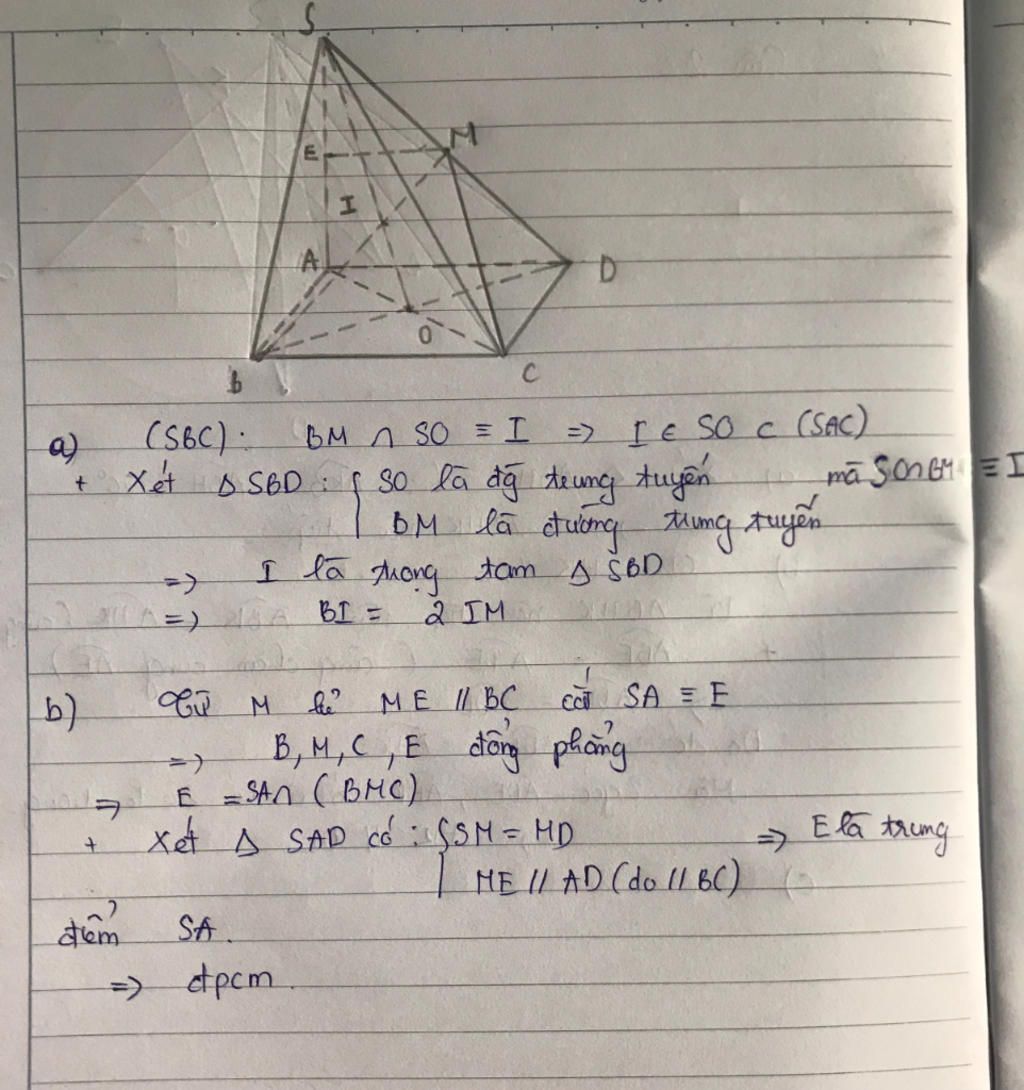 S
M
E
I
A
D
O
B
C
a) (SBC): BM ∩ SO ≡ I => I ∈ SO ⊂ (SAC)
+ Xét Δ SBD : { SO là đg trung tuyến mà SO∩BM ≡ I
BM là đường trung tuyến
=> I là trọng tam Δ SBD
=> BI = 2 IM
b) Từ M kẻ ME // BC cắt SA ≡ E
=> B, M, C, E đồng phẳng
=> E = SA∩ (BMC)
+ Xét Δ SAD có : { SM = MD => E là trung
ME // AD (do // BC)
điểm SA.
=> đpcm.